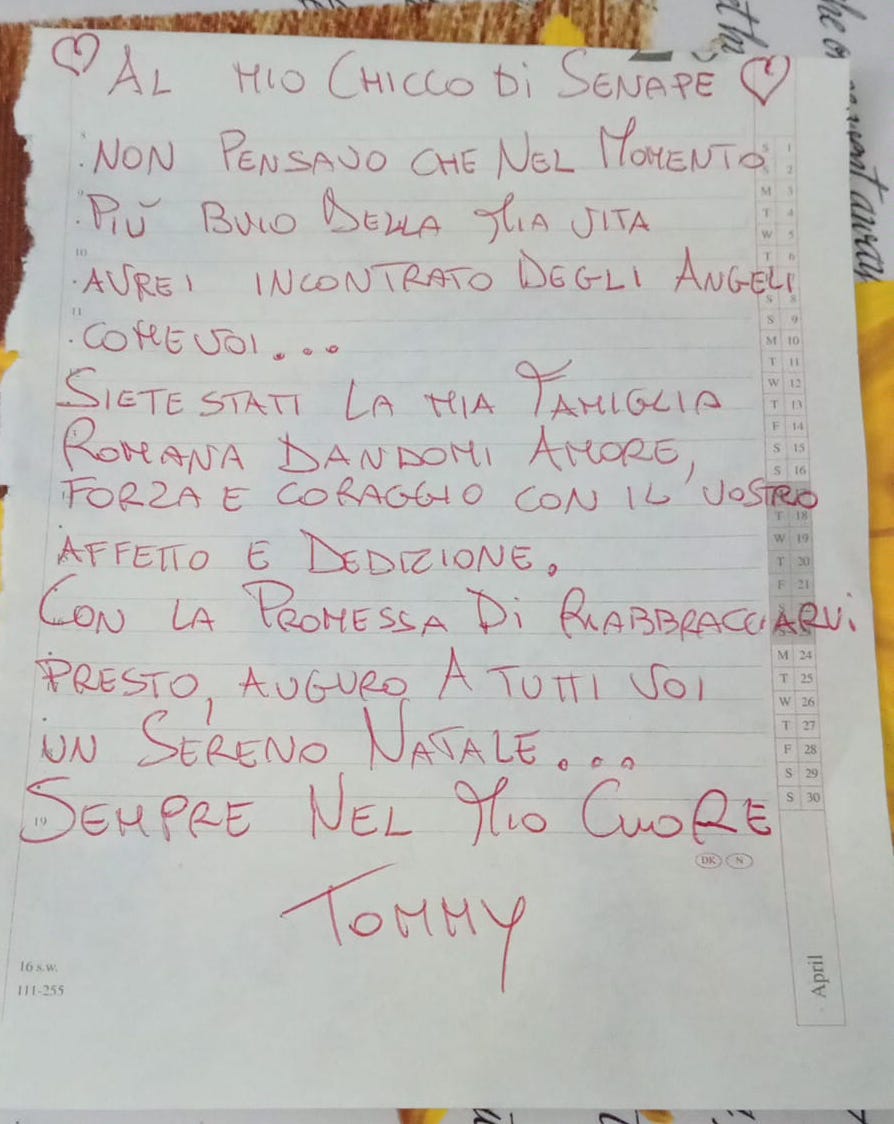 ♡ AL MIO CHICCO DI SENAPE ♡
NON PENSAVO CHE NEL MOMENTO
PIÙ BUIO DELLA MIA VITA
AVREI INCONTRATO DEGLI ANGELI
COME VOI...
SIETE STATI LA MIA FAMIGLIA
ROMANA DANDOMI AMORE,
FORZA E CORAGGIO CON IL VOSTRO
AFFETTO E DEDIZIONE.
CON LA PROMESSA DI RIABBRACCIARVI
PRESTO, AUGURO A TUTTI VOI
UN SERENO NATALE...
SEMPRE NEL MIO CUORE
TOMMY
10
11
19
16 s.w.
111-255
S 1
2
M 3
T 4
W 5
T 6
S 8
S 9
M 10
T 11
W 12
T 13
F 14
S 15
S 16
T 18
W 19
T 20
F 21
M 24
T 25
W 26
T 27
F 28
S 29
S 30
DK N
April